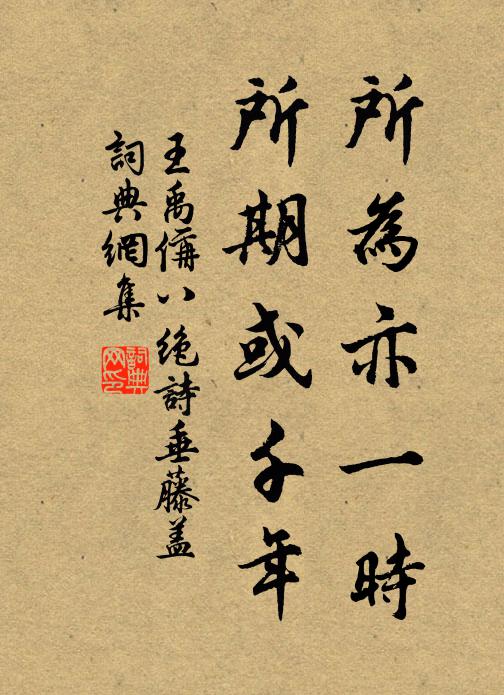 所為亦一時
所期或千年
王禹偁八絕詩垂藤蓋
詞典網集
詞典网印